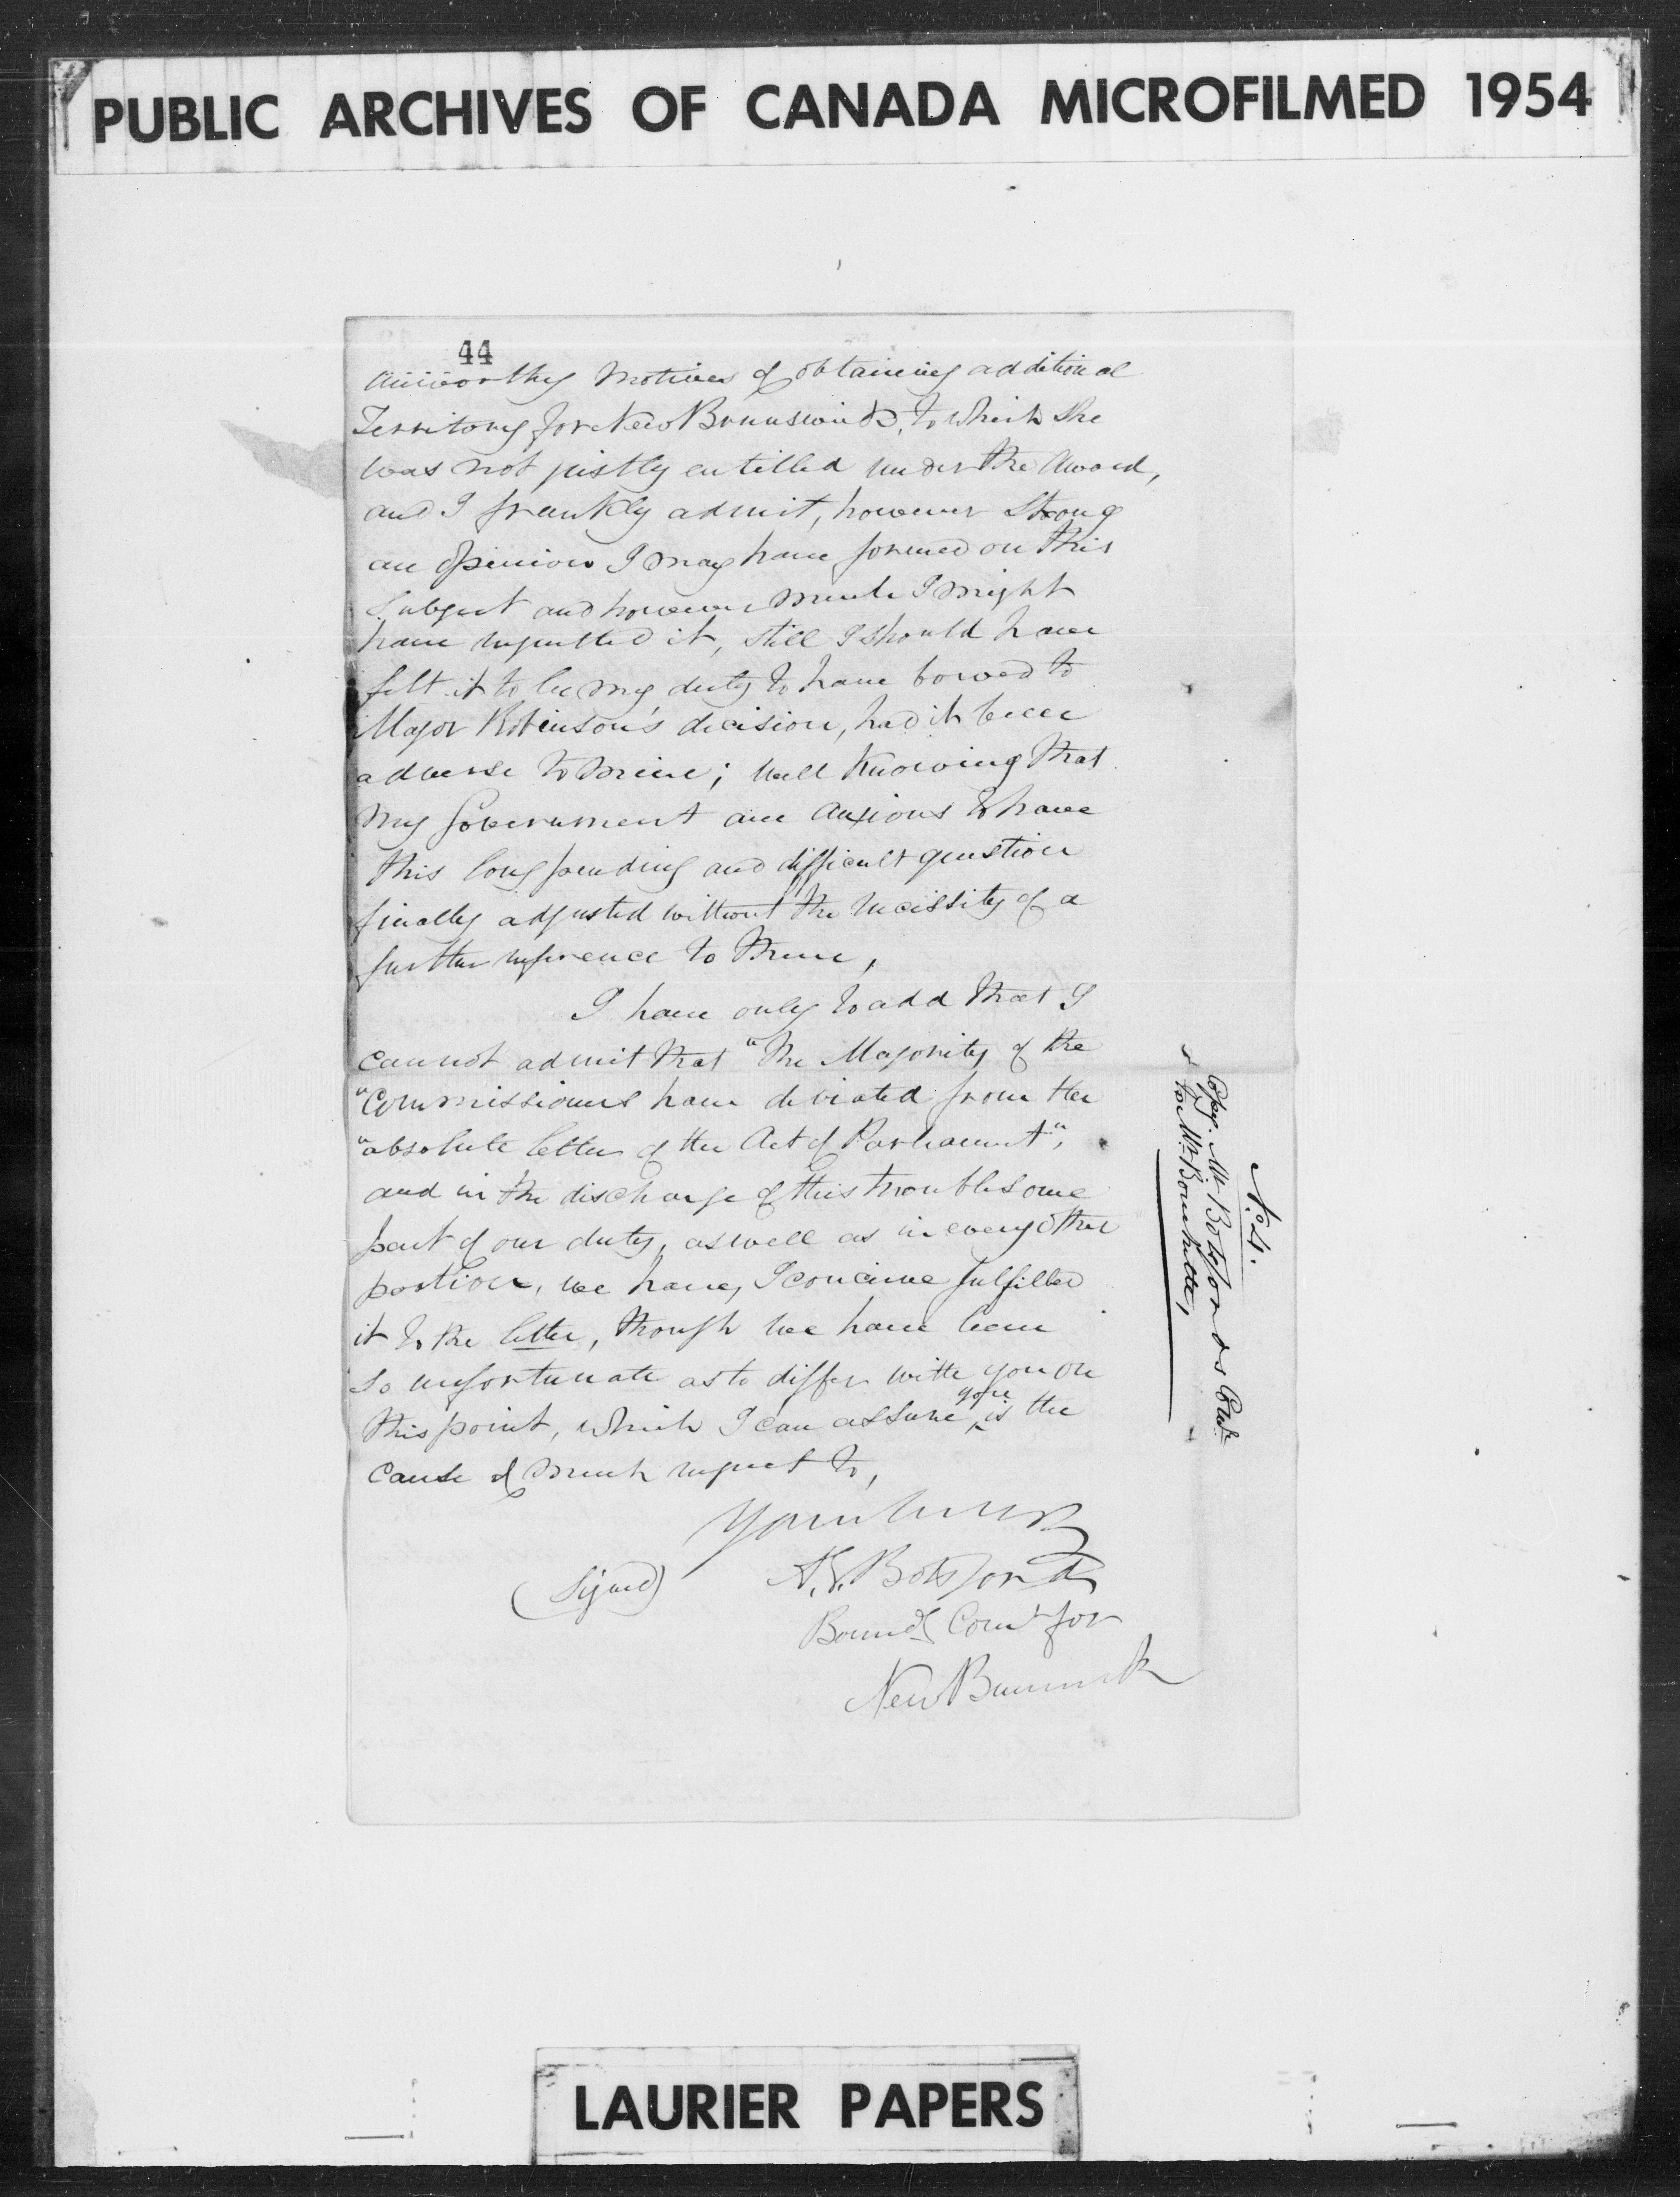 PUBLIC ARCHIVES OF CANADA MICROFILMED 1954
44
unworthy motives of obtaining additional
Territory for New Brunswick, to which she
was not justly entitled under the Award,
and I frankly admit, however strong
an opinion I may have formed on this
subject and however much I might
have regretted it, still I should have
felt it to be my duty to have bowed to
Major Robinson's decision, had it been
adverse to mine; well knowing that
my Government are anxious to have
this long pending and difficult question
finally adjusted without the necessity of a
further reference to them,
I have only to add that I
cannot admit that "the Majority of the
"Commissioners have deviated from the
"absolute letter of the Act of Parliament",
and in the discharge of this troublesome
part of our duty, as well as in every other
portion, we have, I conceive fulfilled
it to the letter, though we have been
so unfortunate as to differ with you on
this point, which I can assure you is the
cause of much regret to,
Yours truly
(Signed) A. E. Botsford
Bound Comr for
New Brunswick
No 4.
Copy. Mr Botsford's
to Mr Bouchette,
LAURIER PAPERS